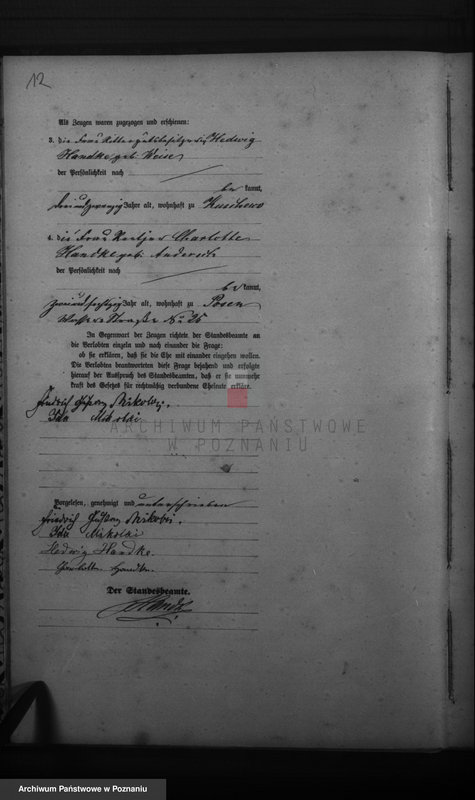 12
Als Zeugen waren zugezogen und erschienen:
3. die Frau Rittergutsbesitzer Hedwig
Handke geb. Weise
der Persönlichkeit nach
be kannt,
dreiundzwanzig Jahre alt, wohnhaft zu
4. die Frau Rentier Charlotte
Handke geb. Andersch
der Persönlichkeit nach
be kannt,
zweiundsechzig Jahre alt, wohnhaft zu Posen
Straße No 25
In Gegenwart der Zeugen richtete der Standesbeamte an
die Verlobten einzeln und nach einander die Frage:
ob sie erklären, daß sie die Ehe mit einander eingehen wollen.
Die Verlobten beantworteten diese Frage bejahend und erfolgte
hierauf der Ausspruch des Standesbeamten, daß er sie nunmehr
kraft des Gesetzes für rechtmäßig verbundene Eheleute erkläre.
Friedrich Gustav Nikolai.
Ida Nikolai
ARCHIWUM PAŃSTWOWE
W POZNANIU
Vorgelesen, genehmigt und unterschrieben
Friedrich Gustav Nikolai.
Ida Nikolai
Hedwig Handke.
Charlotte Handke.
Der Standesbeamte.
Archiwum Państwowe w Poznaniu